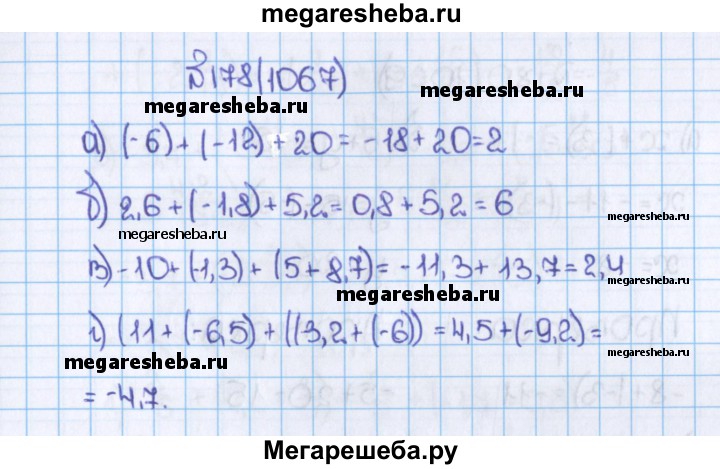 megaresheba.ru
№178(1067)
megaresheba.ru
megaresheba.ru
а) (-6)+(-12)+20=-18+20=2
megaresheba.ru
б) 2,6+(-1,8)+5,2=0,8+5,2=6
megaresheba.ru
megaresheba.ru
в) -10+(-1,3)+(5+8,7)=-11,3+13,7=2,4
megaresheba.ru
megaresheba.ru
г) (11+(-6,5)+((3,2+(-6))=4,5+(-9,2)=
megaresheba.ru
megaresheba.ru
=-4,7.
Мегарешеба.ру